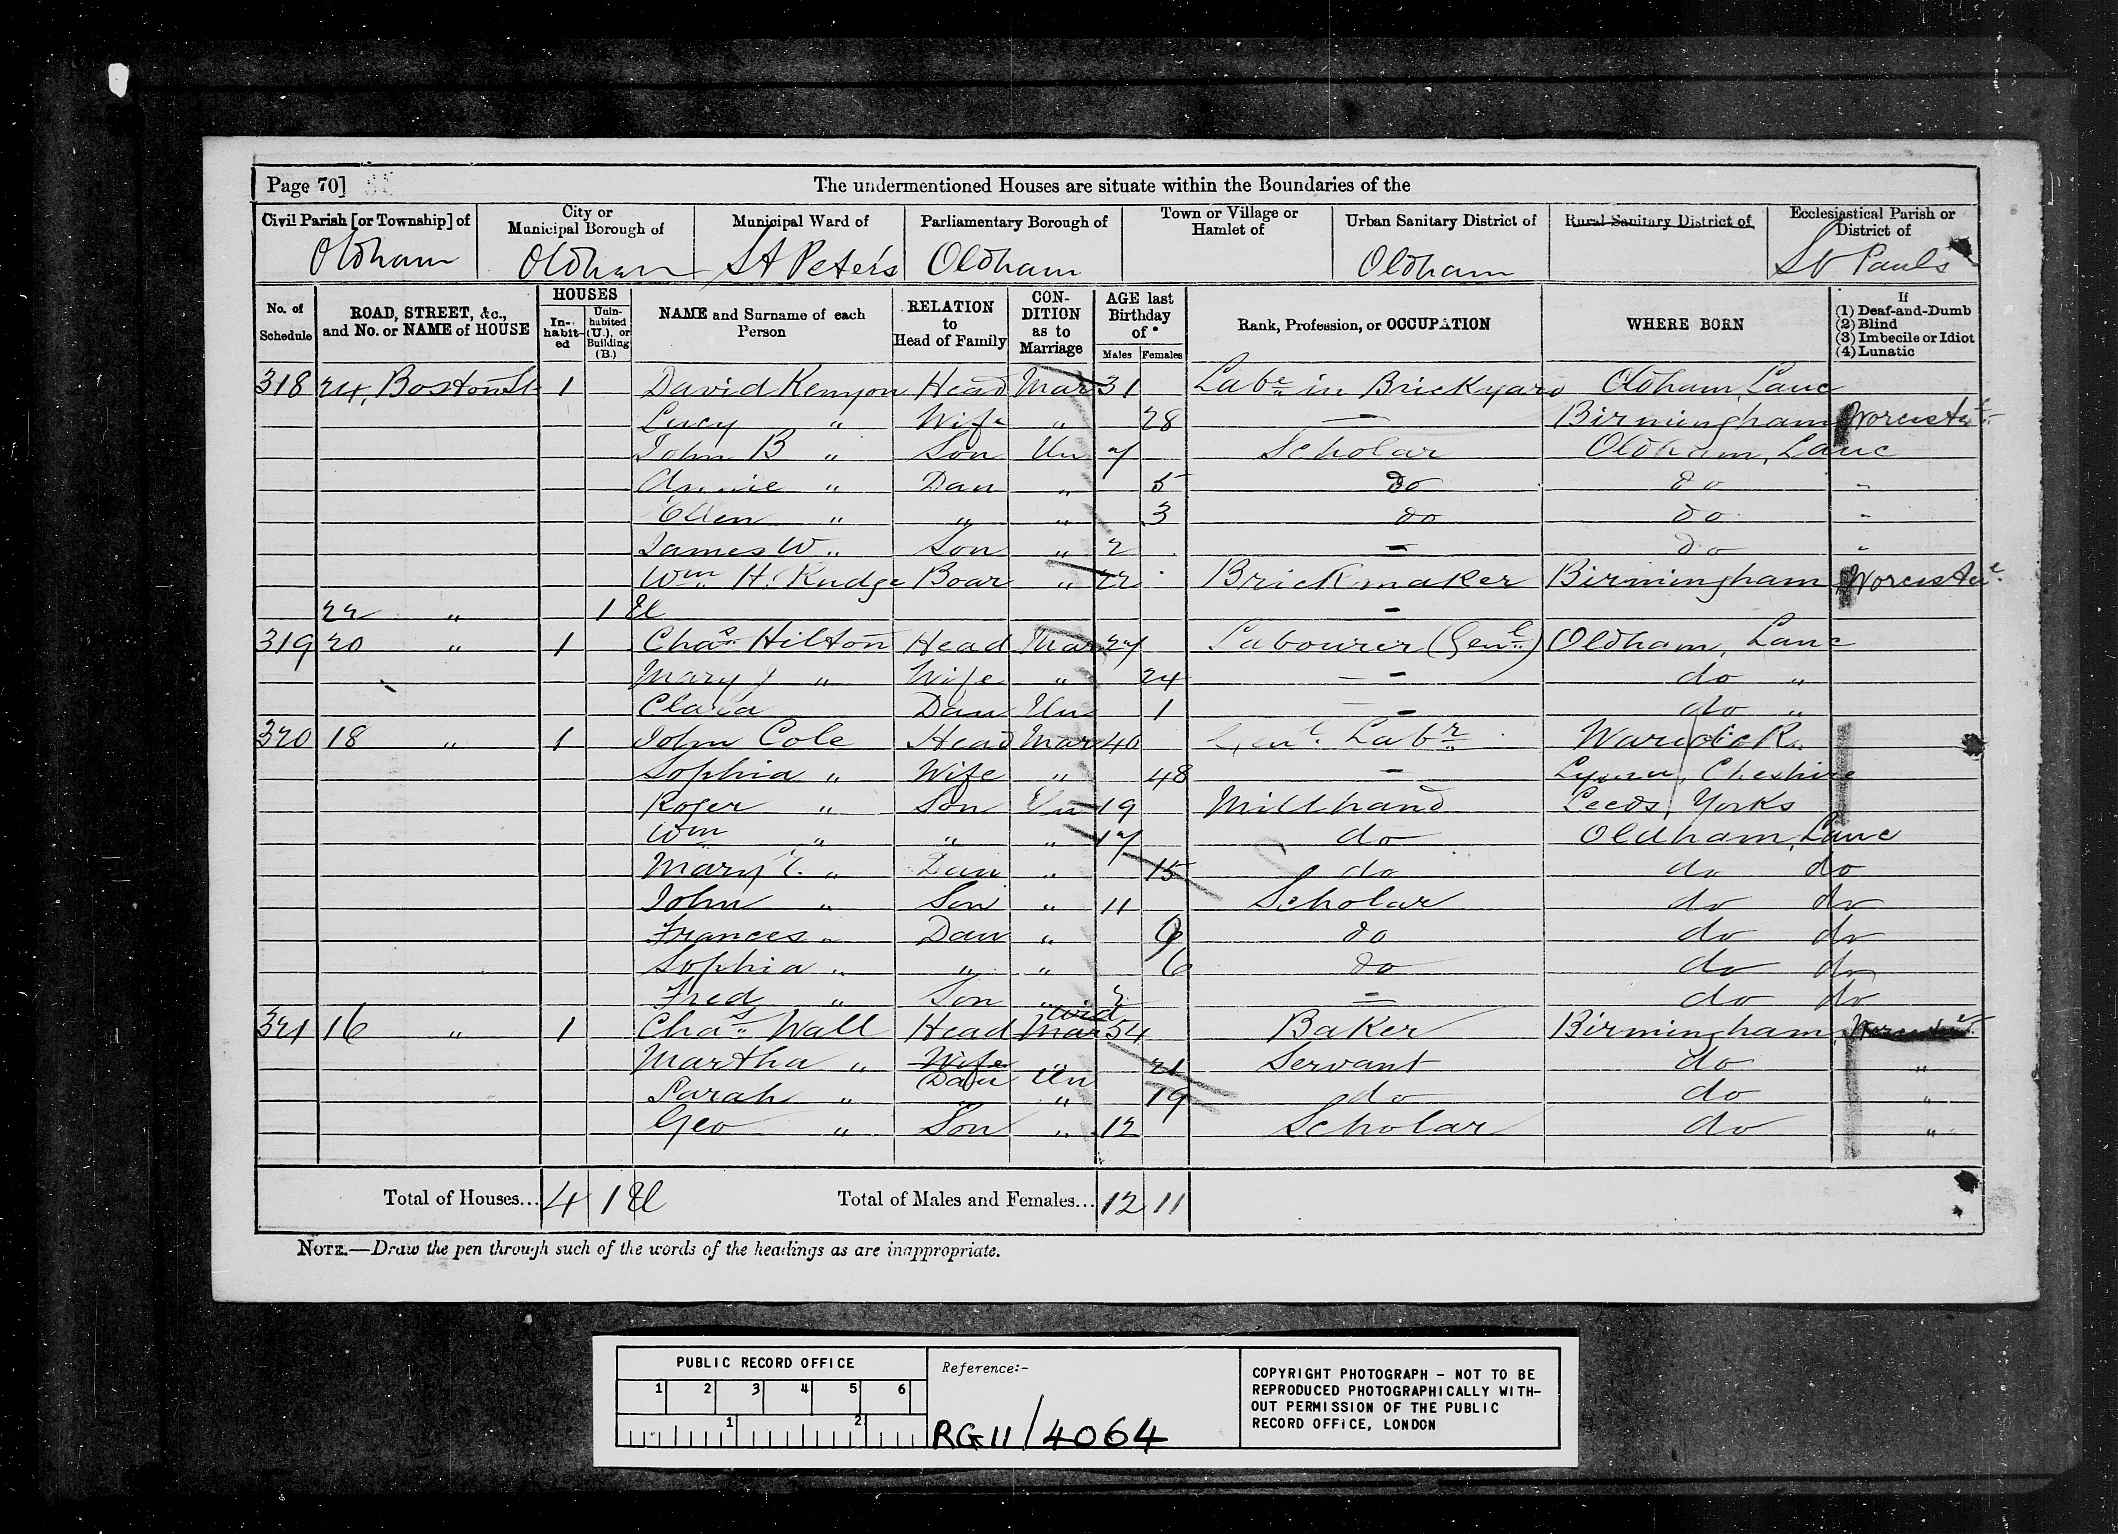 Page 70]
The undermentioned Houses are situate within the Boundaries of the
Civil Parish [or Township] of
Oldham
City or Municipal Borough of
Oldham
Municipal Ward of
St Peter's
Parliamentary Borough of
Oldham
Town or Village or Hamlet of
Urban Sanitary District of
Oldham
Rural Sanitary District of
Ecclesiastical Parish or District of
St Pauls
No. of Schedule
ROAD, STREET, &c., and No. or NAME of HOUSE
HOUSES
In-habit-ed
Unin-habited (U.), or Building (B.)
NAME and Surname of each Person
RELATION to Head of Family
CON-DITION as to Marriage
AGE last Birthday of
Males
Females
Rank, Profession, or OCCUPATION
WHERE BORN
If
(1) Deaf-and-Dumb
(2) Blind
(3) Imbecile or Idiot
(4) Lunatic
318 24, Boston St 1 David Kenyon Head Mar 31 Labr in Brickyard Oldham, Lanc
Lucy " Wife " 28 — Birmingham Worcester
John B " Son Un 7 Scholar Oldham, Lanc
Annie " Dau " 5 do do "
Ellen " " " 3 do do "
James W " Son " 2 — do "
Wm H. Rudge Boar " 22 Brickmaker Birmingham, Worcester
22 " 1 U —
319 20 " 1 Chas Hilton Head Mar 27 Labourer (Genl) Oldham, Lanc
Mary J " Wife " 24 — do "
Clara Dau Un 1 — do "
320 18 " 1 John Cole Head Mar 40 Genl Labr Warwick
Sophia " Wife " 48 — Lymm, Cheshire
Roger " Son Un 19 Mill hand Leeds, Yorks
Wm " " " 17 do Oldham, Lanc
Mary E. " Dau " 15 do do do
John " Son " 11 Scholar do do
Frances " Dau " 9 do do do
Sophia " " " 6 do do do
Fred " Son " 2 — do do
321 16 " 1 Chas Wall Head Mar Wid 54 Baker Birmingham, Worcester
Martha " Wife Dau Un 21 Servant do "
Sarah " " " 19 do do "
Geo " Son " 12 Scholar do "
Total of Houses... 4 1 U Total of Males and Females... 12 11
NOTE.—Draw the pen through such of the words of the headings as are inappropriate.
PUBLIC RECORD OFFICE
1 2 3 4 5 6
1 2
Reference:-
RG 11/4064
COPYRIGHT PHOTOGRAPH - NOT TO BE
REPRODUCED PHOTOGRAPHICALLY WITH-
OUT PERMISSION OF THE PUBLIC
RECORD OFFICE, LONDON